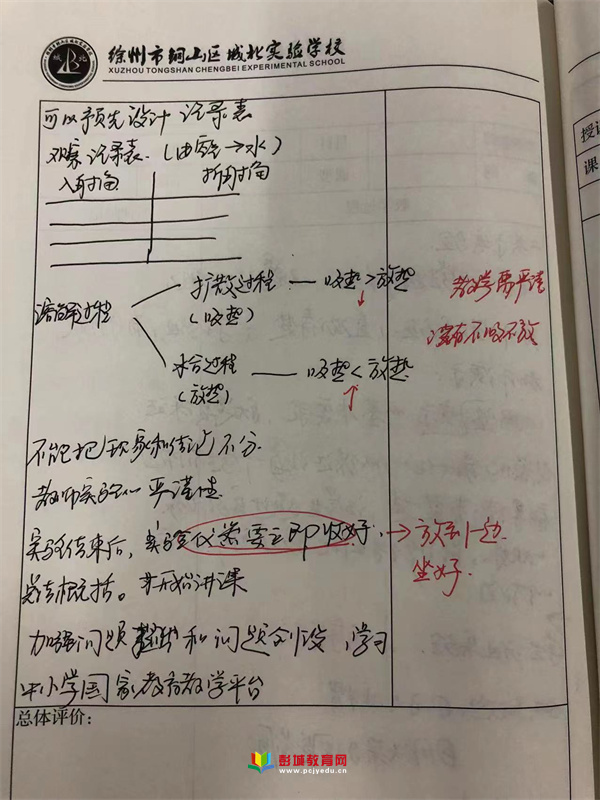 徐州市铜山区城北实验学校
XUZHOU TONGSHAN CHENGBEI EXPERIMENTAL SCHOOL
可以预先设计记录表
观察记录表.（由空气→水）
入射角 折射角
溶解过程
扩散过程 — 吸热>放热
（吸热）
水合过程 — 吸热<放热
（放热）
教学需严谨
没有不吸不放
不能把现象和结论不分.
教师实验的严谨性.
实验结束后，实验仪器要立即收好，→放到一边
坐好.
总结概括。开始讲课
加强问题 和问题创设，学习
中小学国家教育教学平台
总体评价：
授课
课
彭城教育网
www.pcjyedu.cn